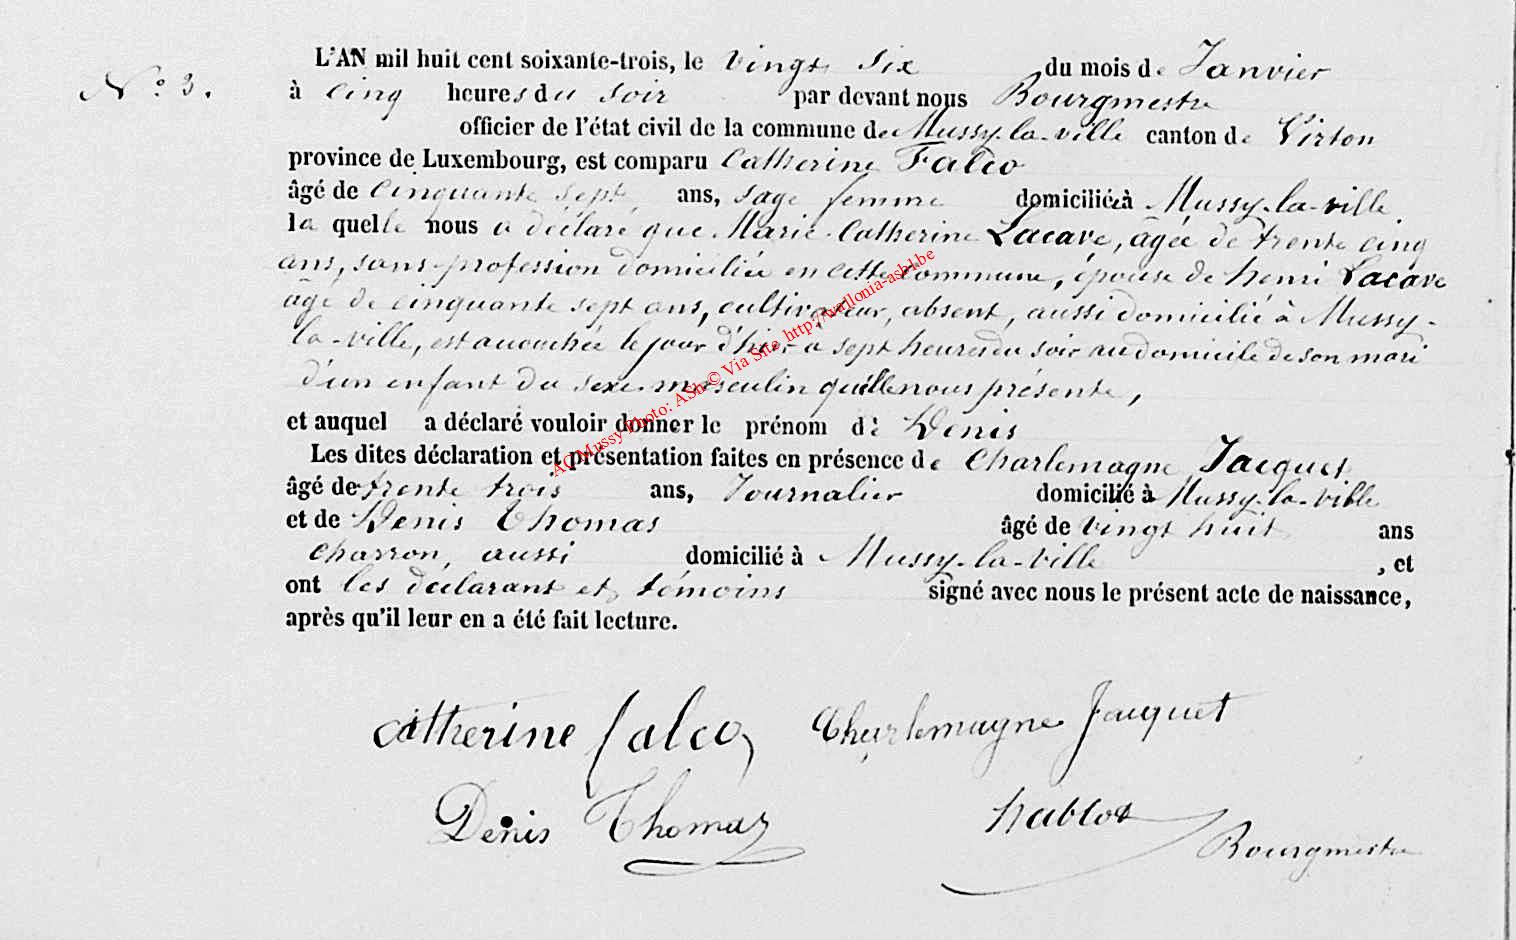 L'AN mil huit cent soixante-trois, le vingt six du mois de Janvier
N.o 3. à cinq heures du soir par devant nous Bourgmestre
officier de l'état civil de la commune de Mussy-la-ville canton de Virton
province de Luxembourg, est comparu Catherine Falco
âgé de cinquante sept ans, sage femme domiciliée à Mussy-la-ville.
laquelle nous a déclaré que Marie Catherine Lacave, âgée de trente cinq
ans, sans profession domiciliée en cette commune, épouse de henri Lacave
âgé de cinquante sept ans, cultivateur, absent, aussi domicilié à Mussy-
la-ville, est accouchée le jour d'hier a sept heures du soir au domicile de son mari
d'un enfant du sexe masculin qu'elle nous présente,
et auquel a déclaré vouloir donner le prénom de Denis
Les dites déclaration et présentation faites en présence de Charlemagne Jacquet
âgé de trente trois ans, Journalier domicilié à Mussy-la-ville
et de Denis Thomas âgé de vingt huit ans
charron, aussi domicilié à Mussy-la-ville , et
ont les declarant et témoins signé avec nous le présent acte de naissance,
après qu'il leur en a été fait lecture.
Catherine falco Charlemagne Jacquet
Denis Thomas hablot Bourgmestre
AC Mussy Photo: ASh © Via Site http://wallonia-asbl.be